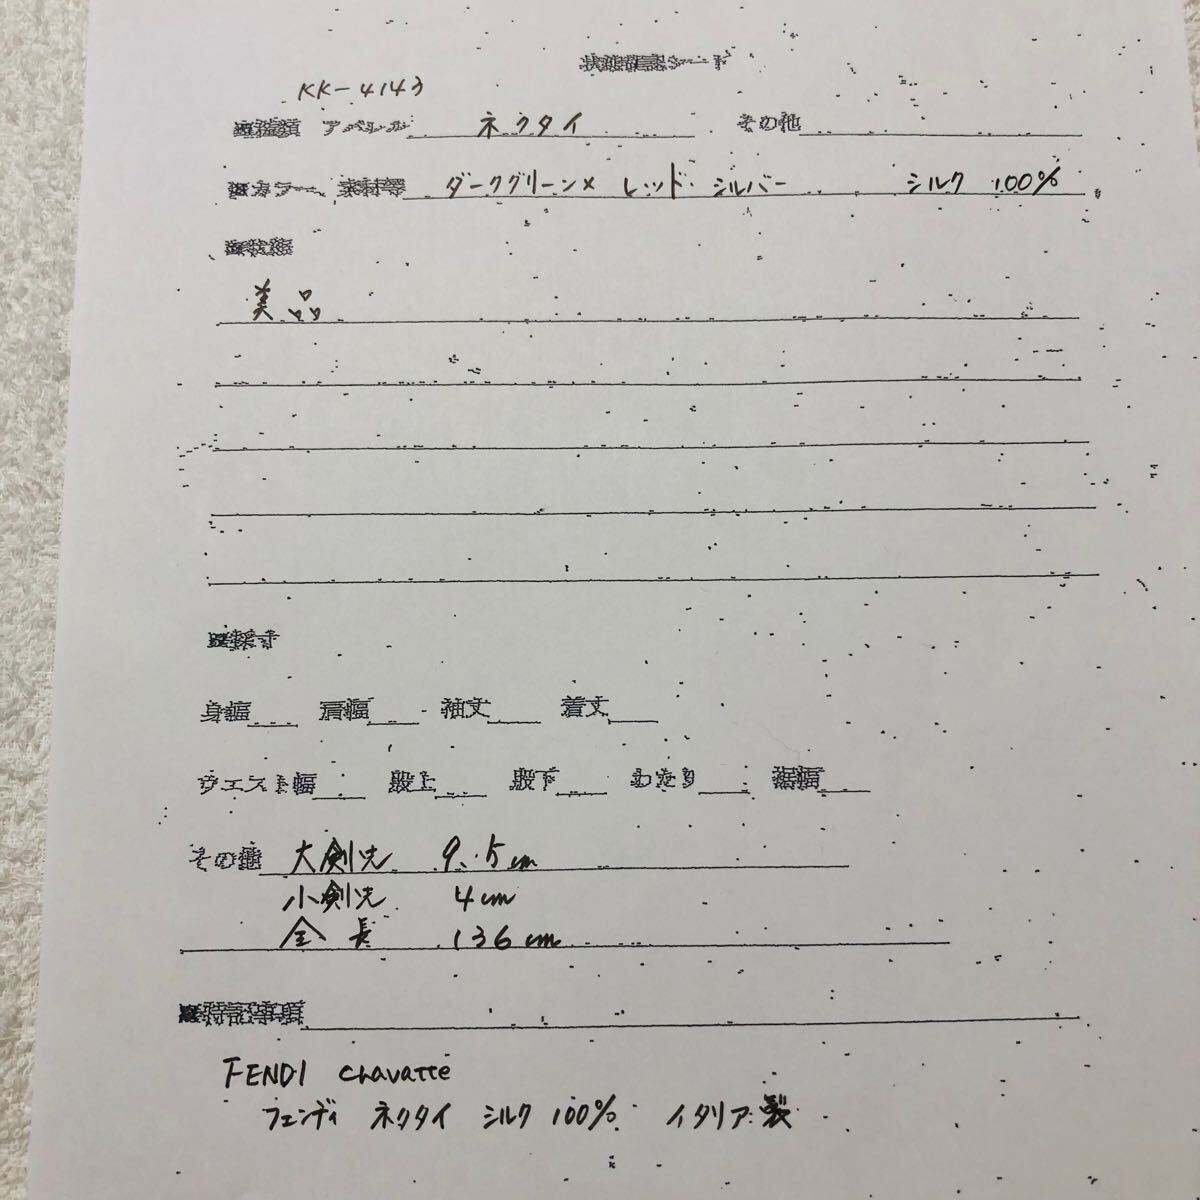 状態確認シート
KK-4143
※種類 アパレル ネクタイ その他
※カラー、素材等 ダークグリーン× レッド・シルバー シルク 100%
※状態
美品
※採寸
身幅 肩幅 袖丈 着丈
ウエスト幅 股上 股下 わたり 裾幅
その他 大剣先 9.5cm
小剣先 4cm
全長 136cm
※特記事項
FENDI Chavatte
フェンディ ネクタイ シルク 100% イタリア製